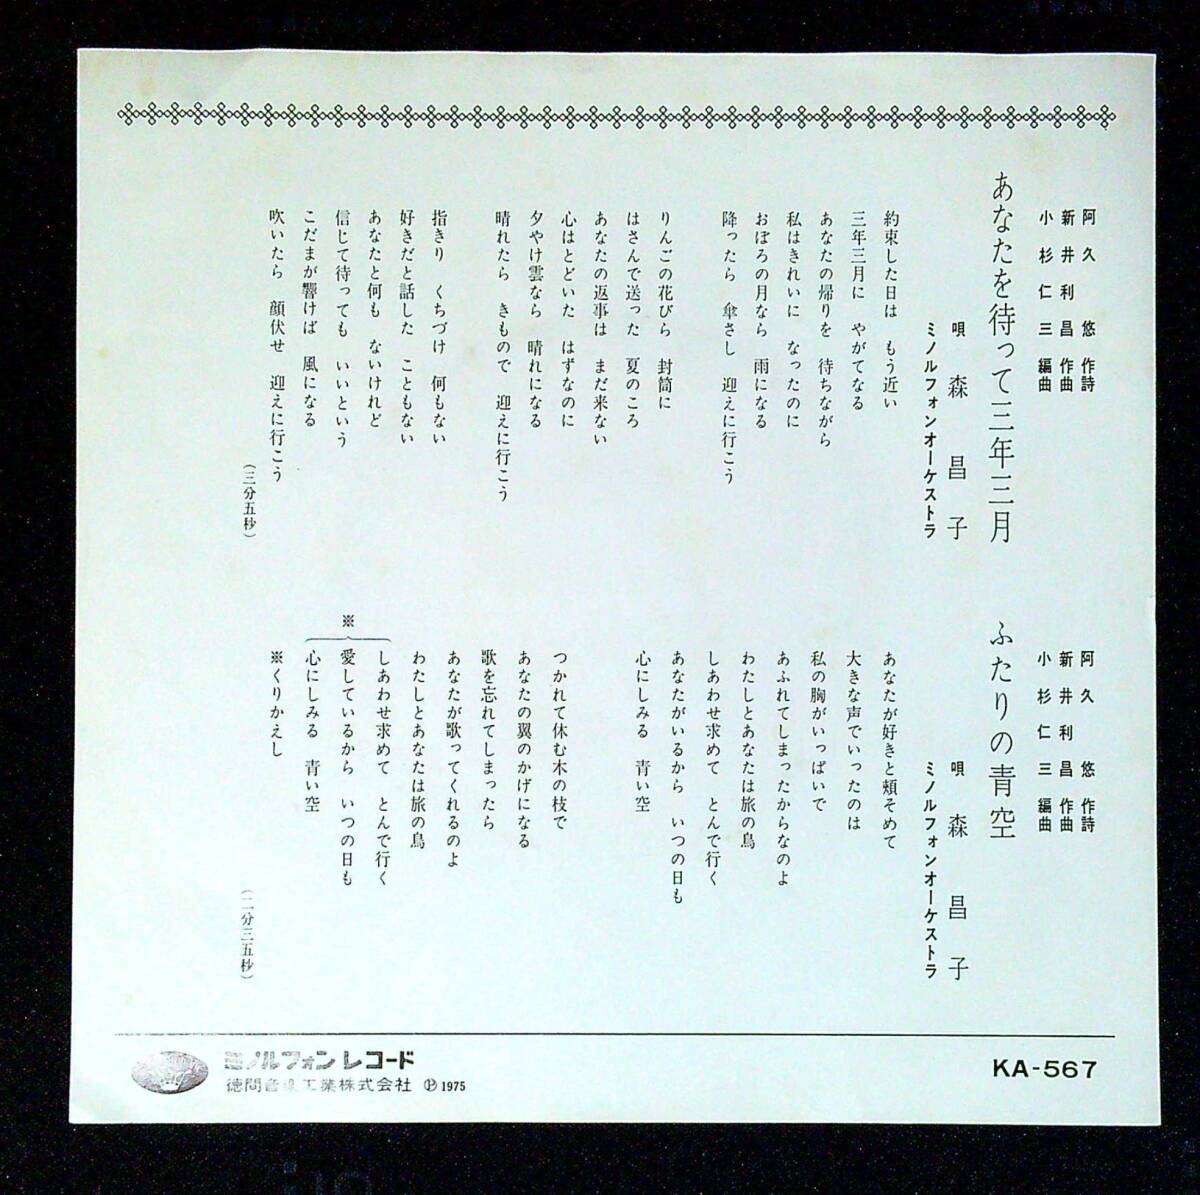 阿久 悠 作詩
新井利昌 作曲
小杉仁三 編曲
あなたを待って三年三月
唄 森 昌子
ミノルフォンオーケストラ
約束した日は もう近い
三年三月に やがてなる
あなたの帰りを 待ちながら
私はきれいに なったのに
おぼろの月なら 雨になる
降ったら 傘さし 迎えに行こう
りんごの花びら 封筒に
はさんで送った 夏のころ
あなたの返事は まだ来ない
心はとどいた はずなのに
夕やけ雲なら 晴れになる
晴れたら きもので 迎えに行こう
指きり くちづけ 何もない
好きだと話した こともない
あなたと何も ないけれど
信じて待っても いいという
こだまが響けば 風になる
吹いたら 顔伏せ 迎えに行こう
(三分五秒)
阿久 悠 作詩
新井利昌 作曲
小杉仁三 編曲
ふたりの青空
唄 森 昌子
ミノルフォンオーケストラ
あなたが好きと頬そめて
大きな声でいったのは
私の胸がいっぱいで
あふれてしまったからなのよ
わたしとあなたは旅の鳥
しあわせ求めて とんで行く
あなたがいるから いつの日も
心にしみる 青い空
つかれて休む木の枝で
あなたの翼のかげになる
歌を忘れてしまったら
あなたが歌ってくれるのよ
わたしとあなたは旅の鳥
※
しあわせ求めて とんで行く
愛しているから いつの日も
心にしみる 青い空
※くりかえし
(二分三五秒)
ミノルフォンレコード
徳間音楽工業株式会社 Ⓟ1975
KA-567